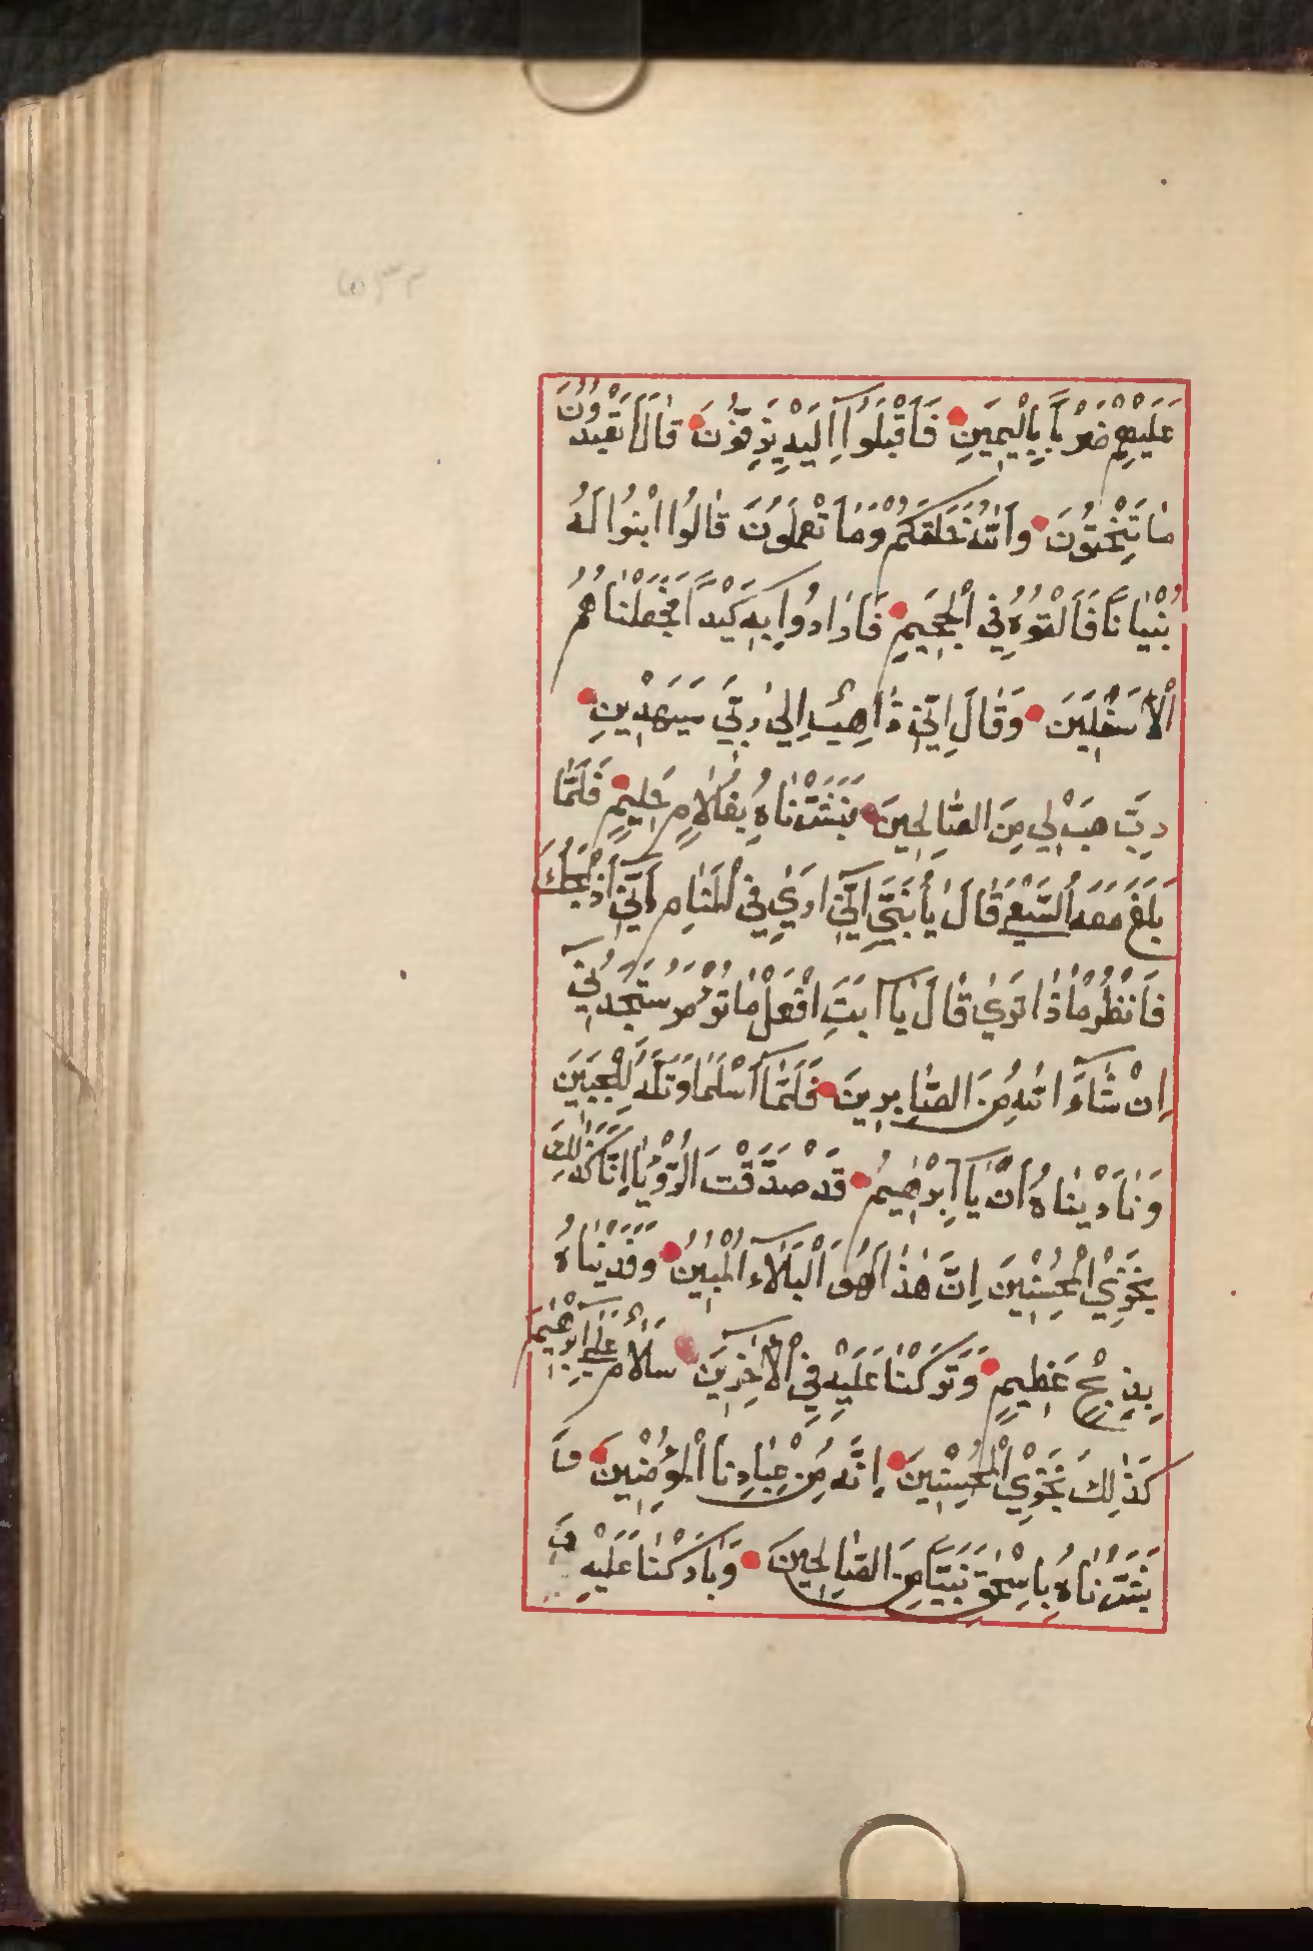 عَلَيْهِمْ ضَرْبًا بِالْيَمِينِ فَاَقْبَلُوٓا اِلَيْهِ يَزِفُّونَ قَالَ اَتَعْبُدُونَ
مَا تَنْحِتُونَ وَاللّٰهُ خَلَقَكُمْ وَمَا تَعْمَلُونَ قَالُوا ابْنُوا لَهُ
بُنْيَانًا فَاَلْقُوهُ فِي الْجَحِيمِ فَاَرَادُوا بِهِ كَيْدًا فَجَعَلْنَاهُمُ
الْاَسْفَلِينَ وَقَالَ اِنِّي ذَاهِبٌ اِلٰى رَبِّي سَيَهْدِينِ
رَبِّ هَبْ لِي مِنَ الصَّالِحِينَ فَبَشَّرْنَاهُ بِغُلَامٍ حَلِيمٍ فَلَمَّا
بَلَغَ مَعَهُ السَّعْيَ قَالَ يَا بُنَيَّ اِنِّٓي اَرٰى فِي الْمَنَامِ اَنِّٓي اَذْبَحُكَ
فَانْظُرْ مَاذَا تَرٰى قَالَ يَٓا اَبَتِ افْعَلْ مَا تُؤْمَرُ سَتَجِدُنِٓي
اِنْ شَٓاءَ اللّٰهُ مِنَ الصَّابِرِينَ فَلَمَّٓا اَسْلَمَا وَتَلَّهُ لِلْجَبِينِ
وَنَادَيْنَاهُ اَنْ يَٓا اِبْرٰهِيمُ قَدْ صَدَّقْتَ الرُّؤْيَا اِنَّا كَذٰلِكَ
نَجْزِي الْمُحْسِنِينَ اِنَّ هٰذَا لَهُوَ الْبَلَٓاءُ الْمُبِينُ وَفَدَيْنَاهُ
بِذِبْحٍ عَظِيمٍ وَتَرَكْنَا عَلَيْهِ فِي الْاٰخِرِينَ سَلَامٌ عَلٰٓى اِبْرٰهِيمَ
كَذٰلِكَ نَجْزِي الْمُحْسِنِينَ اِنَّهُ مِنْ عِبَادِنَا الْمُؤْمِنِينَ وَ
بَشَّرْنَاهُ بِاِسْحٰقَ نَبِيًّا مِنَ الصَّالِحِينَ وَبَارَكْنَا عَلَيْهِ وَ